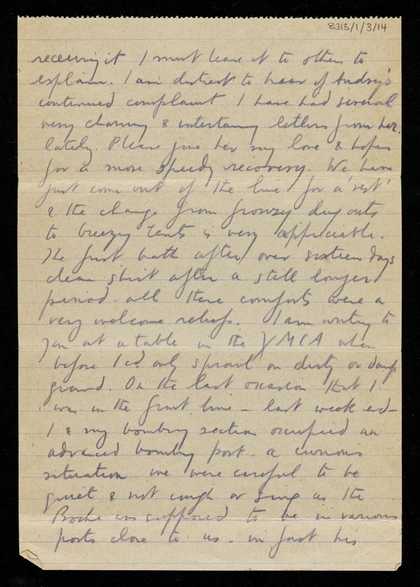 8315/1/3/14
receiving it I must leave it to others to
explain. I am distrest to hear of Audrey's
continued complaint I have had several
very charming & entertaining letters from her
lately. Please give her my love & hopes
for a more speedy recovery. We have
just come out of the line for a 'rest'
& the change from frowzy dug outs
to breezy tents is very appreciable.
The first bath after over sixteen days
clean shirt after a still longer
period all these comforts were a
very welcome relief. I am writing to
you at a table in the YMCA when
before I cd only sprawl on dirty or damp
ground. On the last occasion that I
was in the front line – last week end –
I & my bombing section occupied an
advanced bombing post. a curious
situation we were careful to be
quiet & not cough or sing as the
Boche was supposed to be in various
posts close to us. in fact his